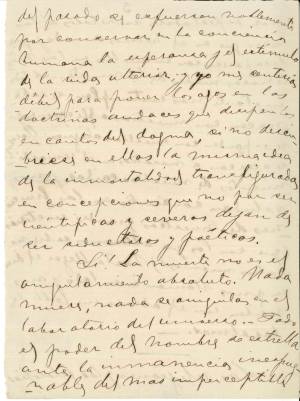 del pasado se esfuerzan noblemente
por conservar en la conciencia
humana la esperanza y el estímulo
de la vida ulterior. y yo me sentiría
débil para poner los ojos en las
doctrinas audaces que disipen los
encantos del dogma, si no descu-
briese en ellas la misma idea
de la inmortalidad, transfigurada
en concepciones que no por ser
científicas y severas dejan de
ser seductoras y poéticas.
La muerte no es el
aniquilamiento absoluto. Nada
muere, nada se aniquila en el
laboratorio del universo... Todo
el poder del hombre se estrella
ante la inmanencia inexpug-
nable del más imperceptible